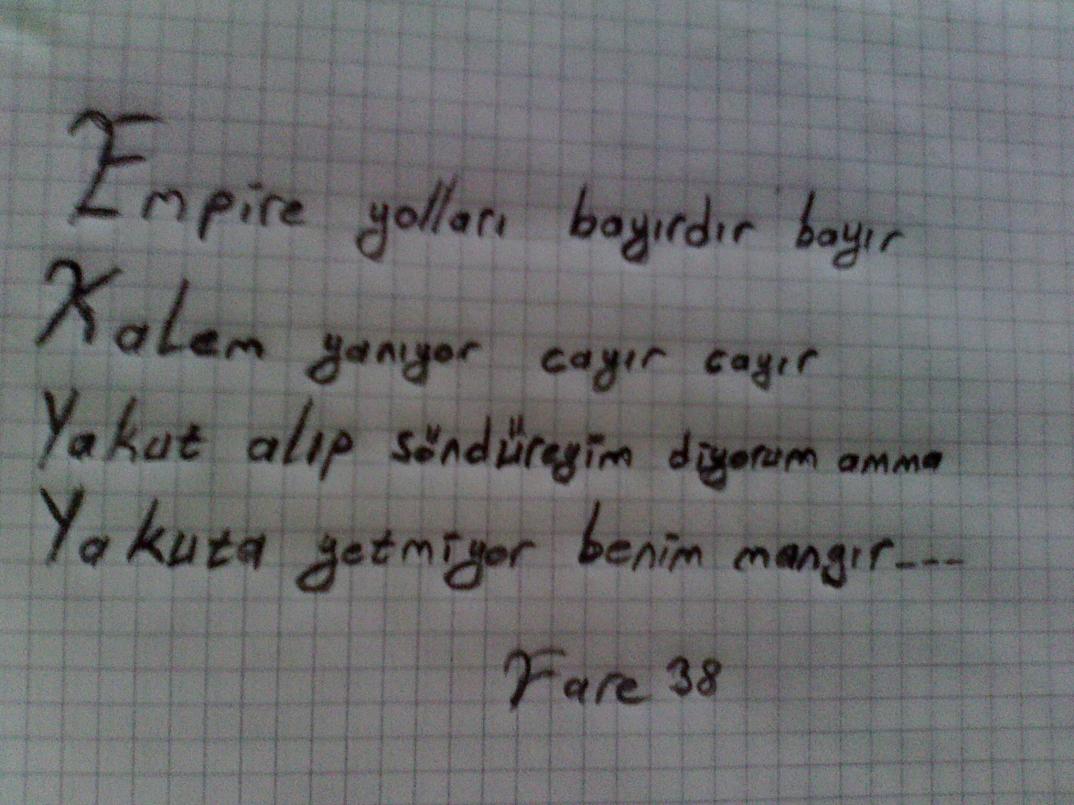 Empire yolları bayırdır bayır
Kalem yanıyor cayır cayır
Yakut alıp söndüreyim diyorum amma
Yakuta yetmiyor benim mangır---
Fare 38